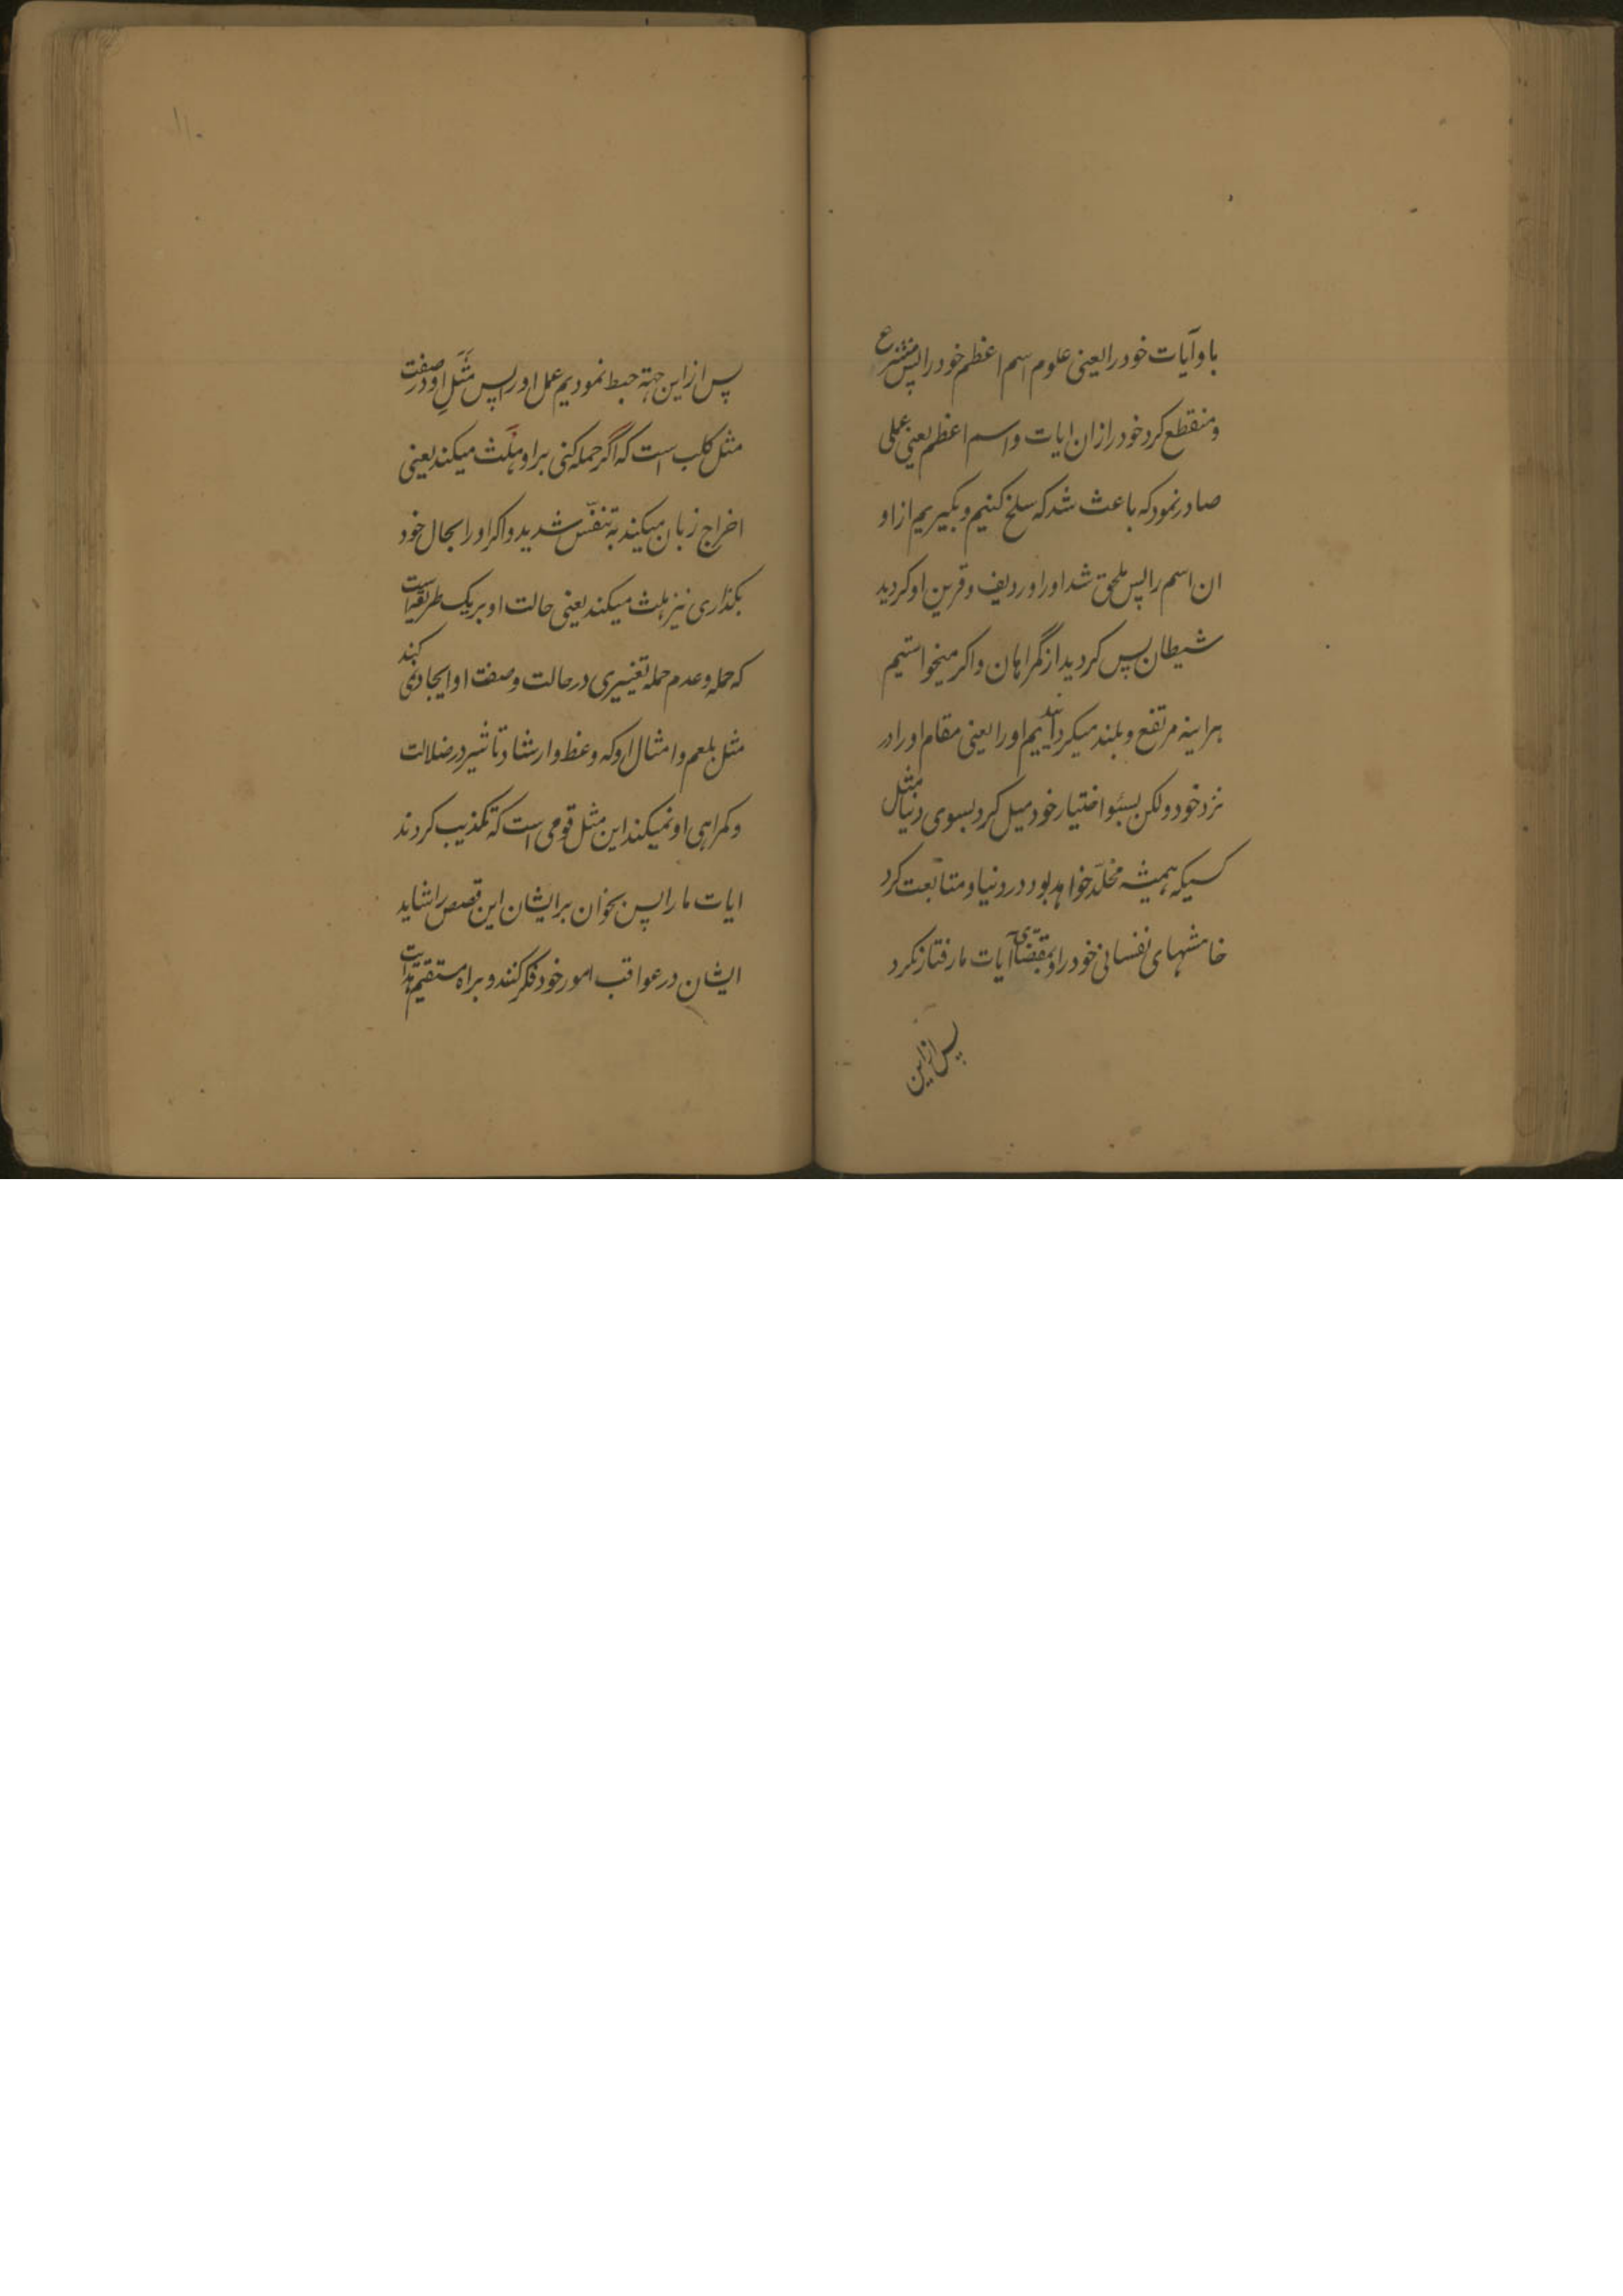 باو آیات خود را یعنی علوم اسم اعظم خود را پس منتزع
و منقطع کرد خود را از ان ایات و اسم اعظم یعنی عملی
صادر نمود که باعث شد که سلخ کنیم و بکیریم از او
ان اسم را پس ملحق شد او را و ردیف و قرین او کردید
شیطان پس کردید از گمراهان و اکر میخواستیم
هراینه مرتفع و بلند میکردانیدیم او را یعنی مقام او را در
نزد خود ولکن بسوء اختیار خود میل کرد بسوی دنیا مثل
کسیکه همیشه مخلّد خواهد بود در دنیا و متابعت کرد
خامشهای نفسانی خود را و بمقتضای آیات ما رفتار نکرد
پس از این
۱۱۰
پس از این جهة حبط نمودیم عمل او را پس مَثَلِ او در صفت
مثل کلب است که اگر حمله کنی بر او یلهث میکند یعنی
اخراج زبان میکند به تنفّس شدید و اکر او را بحال خود
بکذاری نیز یلهث میکند یعنی حالت او بر یک طریقه است
که حمله و عدم حمله تغییری در حالت و صفت او ایجاد نمی کند
مثل بلعم و امثال او که وعظ و ارشاد تاثیر در ضلالت
و کمراهی او نمیکند این مثل قومی است که تکذیب کردند
ایات ما را پس بخوان بر ایشان این قصص را شاید
ایشان در عواقب امور خود فکر کنند و براه مستقیم هدایت